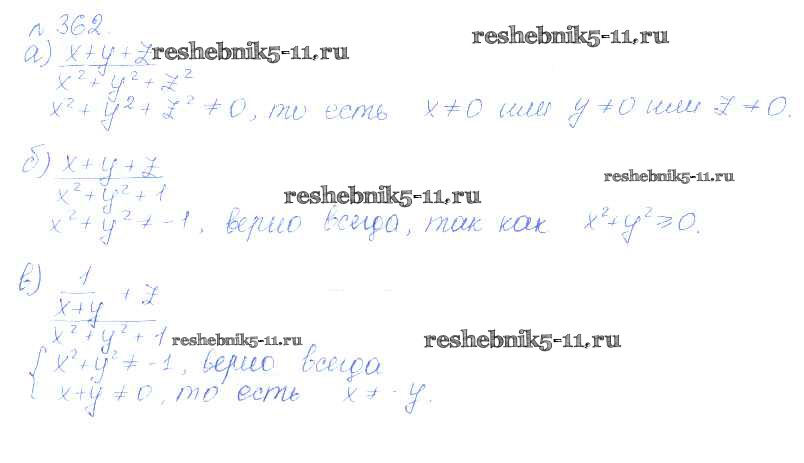 № 362.
reshebnik5-11.ru
а) x+y+z reshebnik5-11.ru
x²+y²+z²
x²+y²+z²≠0, то есть x≠0 или y≠0 или z≠0.
б) x+y+z
x²+y²+1
reshebnik5-11.ru
reshebnik5-11.ru
x²+y²≠-1, верно всегда, так как x²+y²≥0.
в) 1
x+y + z
x²+y²+1 reshebnik5-11.ru
reshebnik5-11.ru
{ x²+y²≠-1, верно всегда
x+y≠0, то есть x≠-y.